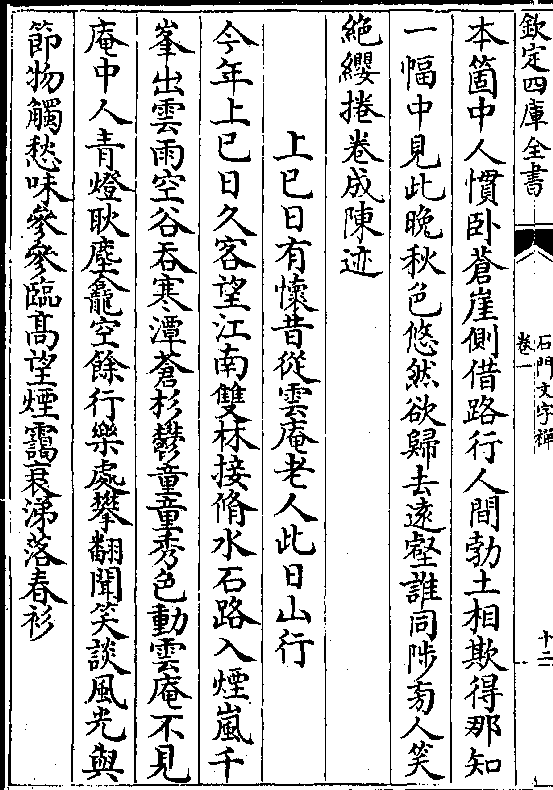 欽定四庫全書
石門文字禪
卷一
十二
本箇中人慣卧蒼崖側借路行人間勃土相欺得那知
一幅中見此晚秋色悠然欲歸去遠壑誰同陟旁人笑
絶纓捲卷成陳迹
上巳日有懷昔從雲庵老人此日山行
今年上巳日久客望江南雙林接脩水石路入煙嵐千
峯出雲雨空谷吞寒潭蒼杉鬱童童秀色動雲庵不見
庵中人青燈耿塵龕空餘行樂處攀翻聞笑談風光與
節物觸愁味參參臨髙望煙靄衰涕落春衫